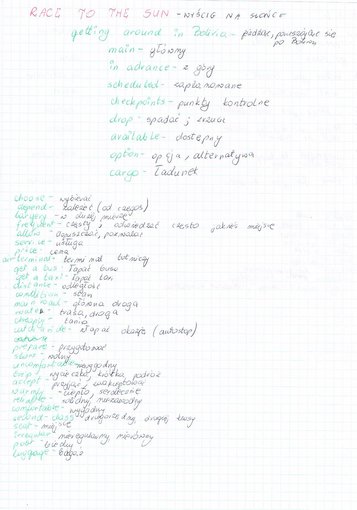 RACE TO THE SUN - WYŚCIG NA SŁOŃCE
getting around in Bolivia - podróż, poruszanie się po Boliwii
main - główny
in advance - z góry
scheduled - zaplanowane
checkpoints - punkty kontrolne
drop - spadać ; zrzut
available - dostępny
option - opcja, alternatywa
cargo - ładunek
choose - wybierać
depend - zależeć (od czegoś)
- w dużej mierze
frequent - częsty ; odwiedzać często jakieś miejsce
allow - dopuszczać, pozwalać
service - usługa
price - cena
air terminal - terminal lotniczy
get a bus - łapać busa
get a taxi - łapać taxi
distance - odległość
condition - stan
main road - główna droga
route - trasa, droga
cheaply - tanio
- złapać okazję (autostop)
prepare - przygotować
uncomfortable - niewygodny
trip - wycieczka, krótka podróż
accept - przyjąć, zaakceptować
warmly - ciepło, serdecznie
reliable - solidny, niezawodny
comfortable - wygodny
second-class - drugorzędny, drugiej klasy
seat - miejsce
irregular - nieregularny, nierówny
poor - biedny
luggage - bagaż